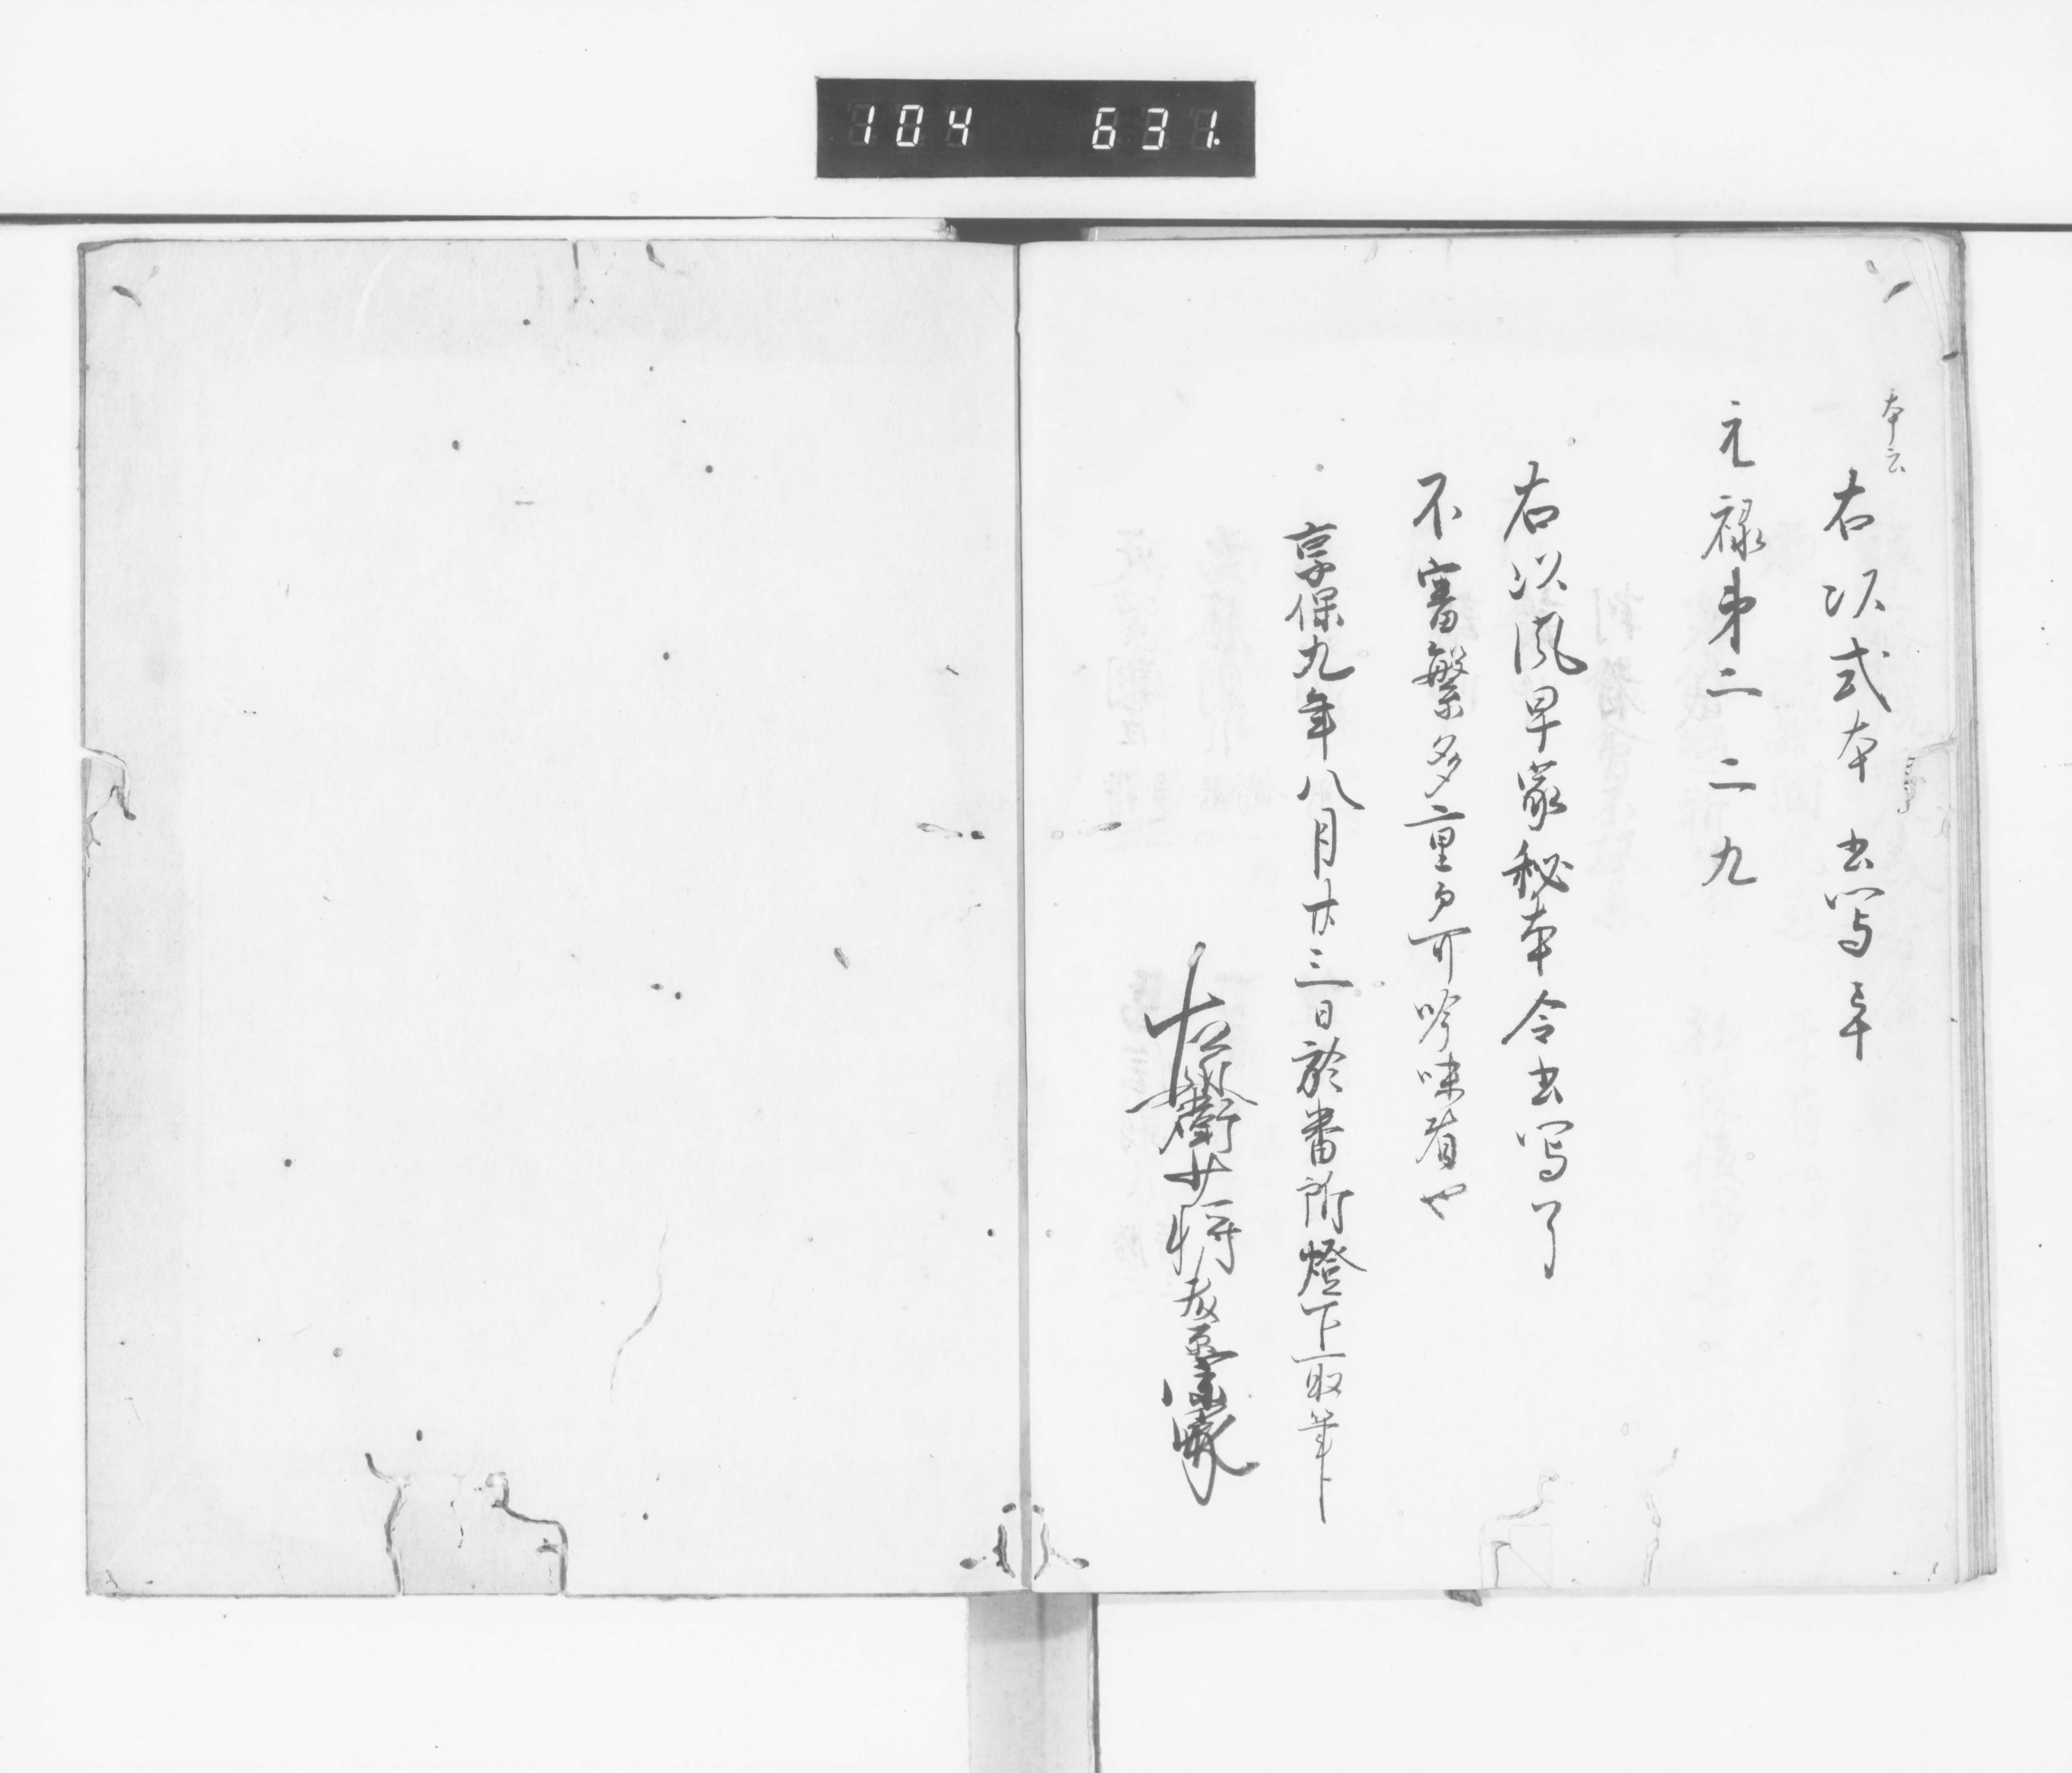 104 631.
本云
右以式本書写畢
元禄第二二九
右以風早家秘本令書写了
不審繁多重而可吟味者也
享保九年八月廿三日於番所燈下取筆
右兵衛少将藤宗家